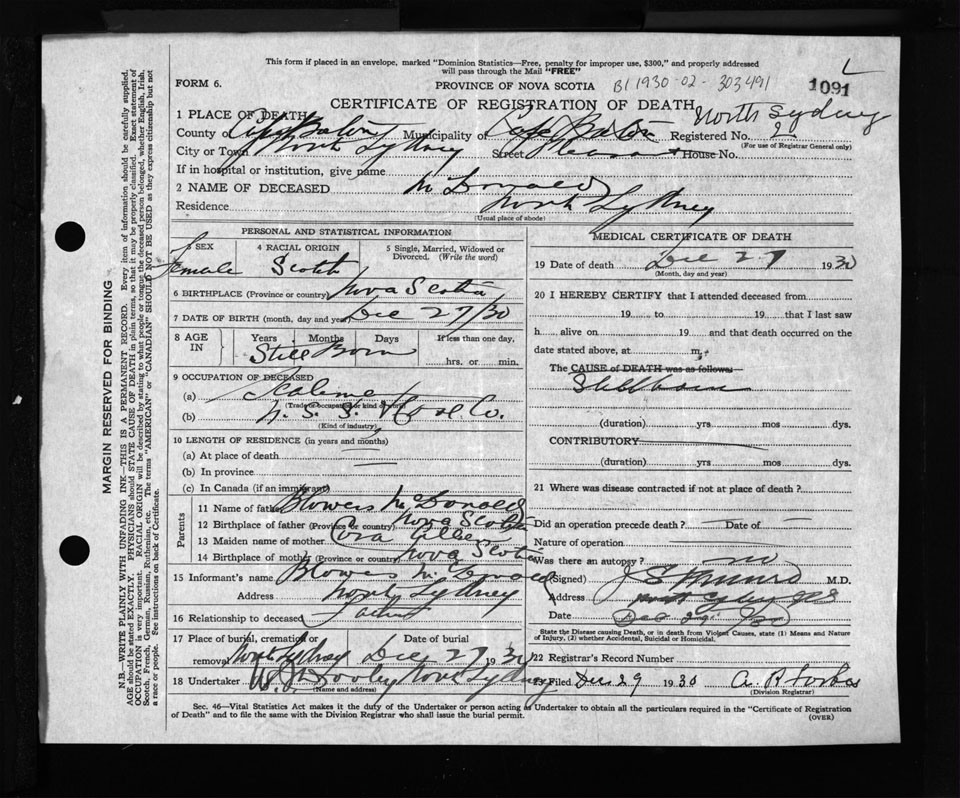 This form if placed in an envelope, marked "Dominion Statistics—Free, penalty for improper use, $300," and properly addressed
will pass through the Mail "FREE"
FORM 6.
PROVINCE OF NOVA SCOTIA
B1 1930-02-303491
1091
L
CERTIFICATE OF REGISTRATION OF DEATH
North Sydney
1 PLACE OF DEATH
County of Cape Breton Municipality of Cape Breton Registered No.
(For use of Registrar General only)
City or Town North Sydney Street Pleasant House No.
If in hospital or institution, give name
2 NAME OF DECEASED McDonald
Residence North Sydney
(Usual place of abode)
PERSONAL AND STATISTICAL INFORMATION
SEX Female
4 RACIAL ORIGIN Scotch
5 Single, Married, Widowed or Divorced. (Write the word)
6 BIRTHPLACE (Province or country) Nova Scotia
7 DATE OF BIRTH (month, day and year) Dec 27/30
8 AGE IN Years Months Days If less than one day,
Still Born hrs. or min.
9 OCCUPATION OF DECEASED
(a)
(Trade or occupation or kind of work)
(b) N. S. S. & Co.
(Kind of industry)
10 LENGTH OF RESIDENCE (in years and months)
(a) At place of death
(b) In province
(c) In Canada (if an immigrant)
Parents
11 Name of father Blowers McDonald
12 Birthplace of father (Province or country) Nova Scotia
13 Maiden name of mother Cora
14 Birthplace of mother (Province or country) Nova Scotia
15 Informant's name Blowers McDonald
Address North Sydney
16 Relationship to deceased Father
17 Place of burial, cremation or removal North Sydney Date of burial Dec 27 1930
18 Undertaker Dooley North Sydney
(Name and address)
MEDICAL CERTIFICATE OF DEATH
19 Date of death Dec 27 1930
(Month, day and year)
20 I HEREBY CERTIFY that I attended deceased from
19 to 19 that I last saw
h alive on 19 and that death occurred on the
date stated above, at m.
The CAUSE of DEATH was as follows:
Stillborn
(duration) yrs mos dys.
CONTRIBUTORY
(duration) yrs mos dys.
21 Where was disease contracted if not at place of death?
Did an operation precede death? Date of
Nature of operation
Was there an autopsy? no
(Signed) J S Munro M.D.
Address North Sydney
Date Dec 29/30
State the Disease causing Death, or in death from Violent Causes, state (1) Means and Nature
of Injury, (2) whether Accidental, Suicidal or Homicidal.
22 Registrar's Record Number
23 Filed Dec 29 1930 A. R. Forbes
(Division Registrar)
Sec. 46—Vital Statistics Act makes it the duty of the Undertaker or person acting as Undertaker to obtain all the particulars required in the "Certificate of Registration
of Death" and to file the same with the Division Registrar who shall issue the burial permit.
(OVER)
MARGIN RESERVED FOR BINDING
N.B.—WRITE PLAINLY WITH UNFADING INK—THIS IS A PERMANENT RECORD. Every item of information should be carefully supplied.
AGE should be stated EXACTLY. PHYSICIANS should STATE CAUSE OF DEATH in plain terms, so that it may be properly classified. Exact statement of
OCCUPATION is very important. RACIAL ORIGIN will be described by stating to what people or tongue the deceased person belonged, whether English, Irish,
Scotch, French, German, Russian, Ruthenian, etc. The terms "AMERICAN" or "CANADIAN" SHOULD NOT BE USED as they express citizenship but not
a race or people. See instructions on back of Certificate.